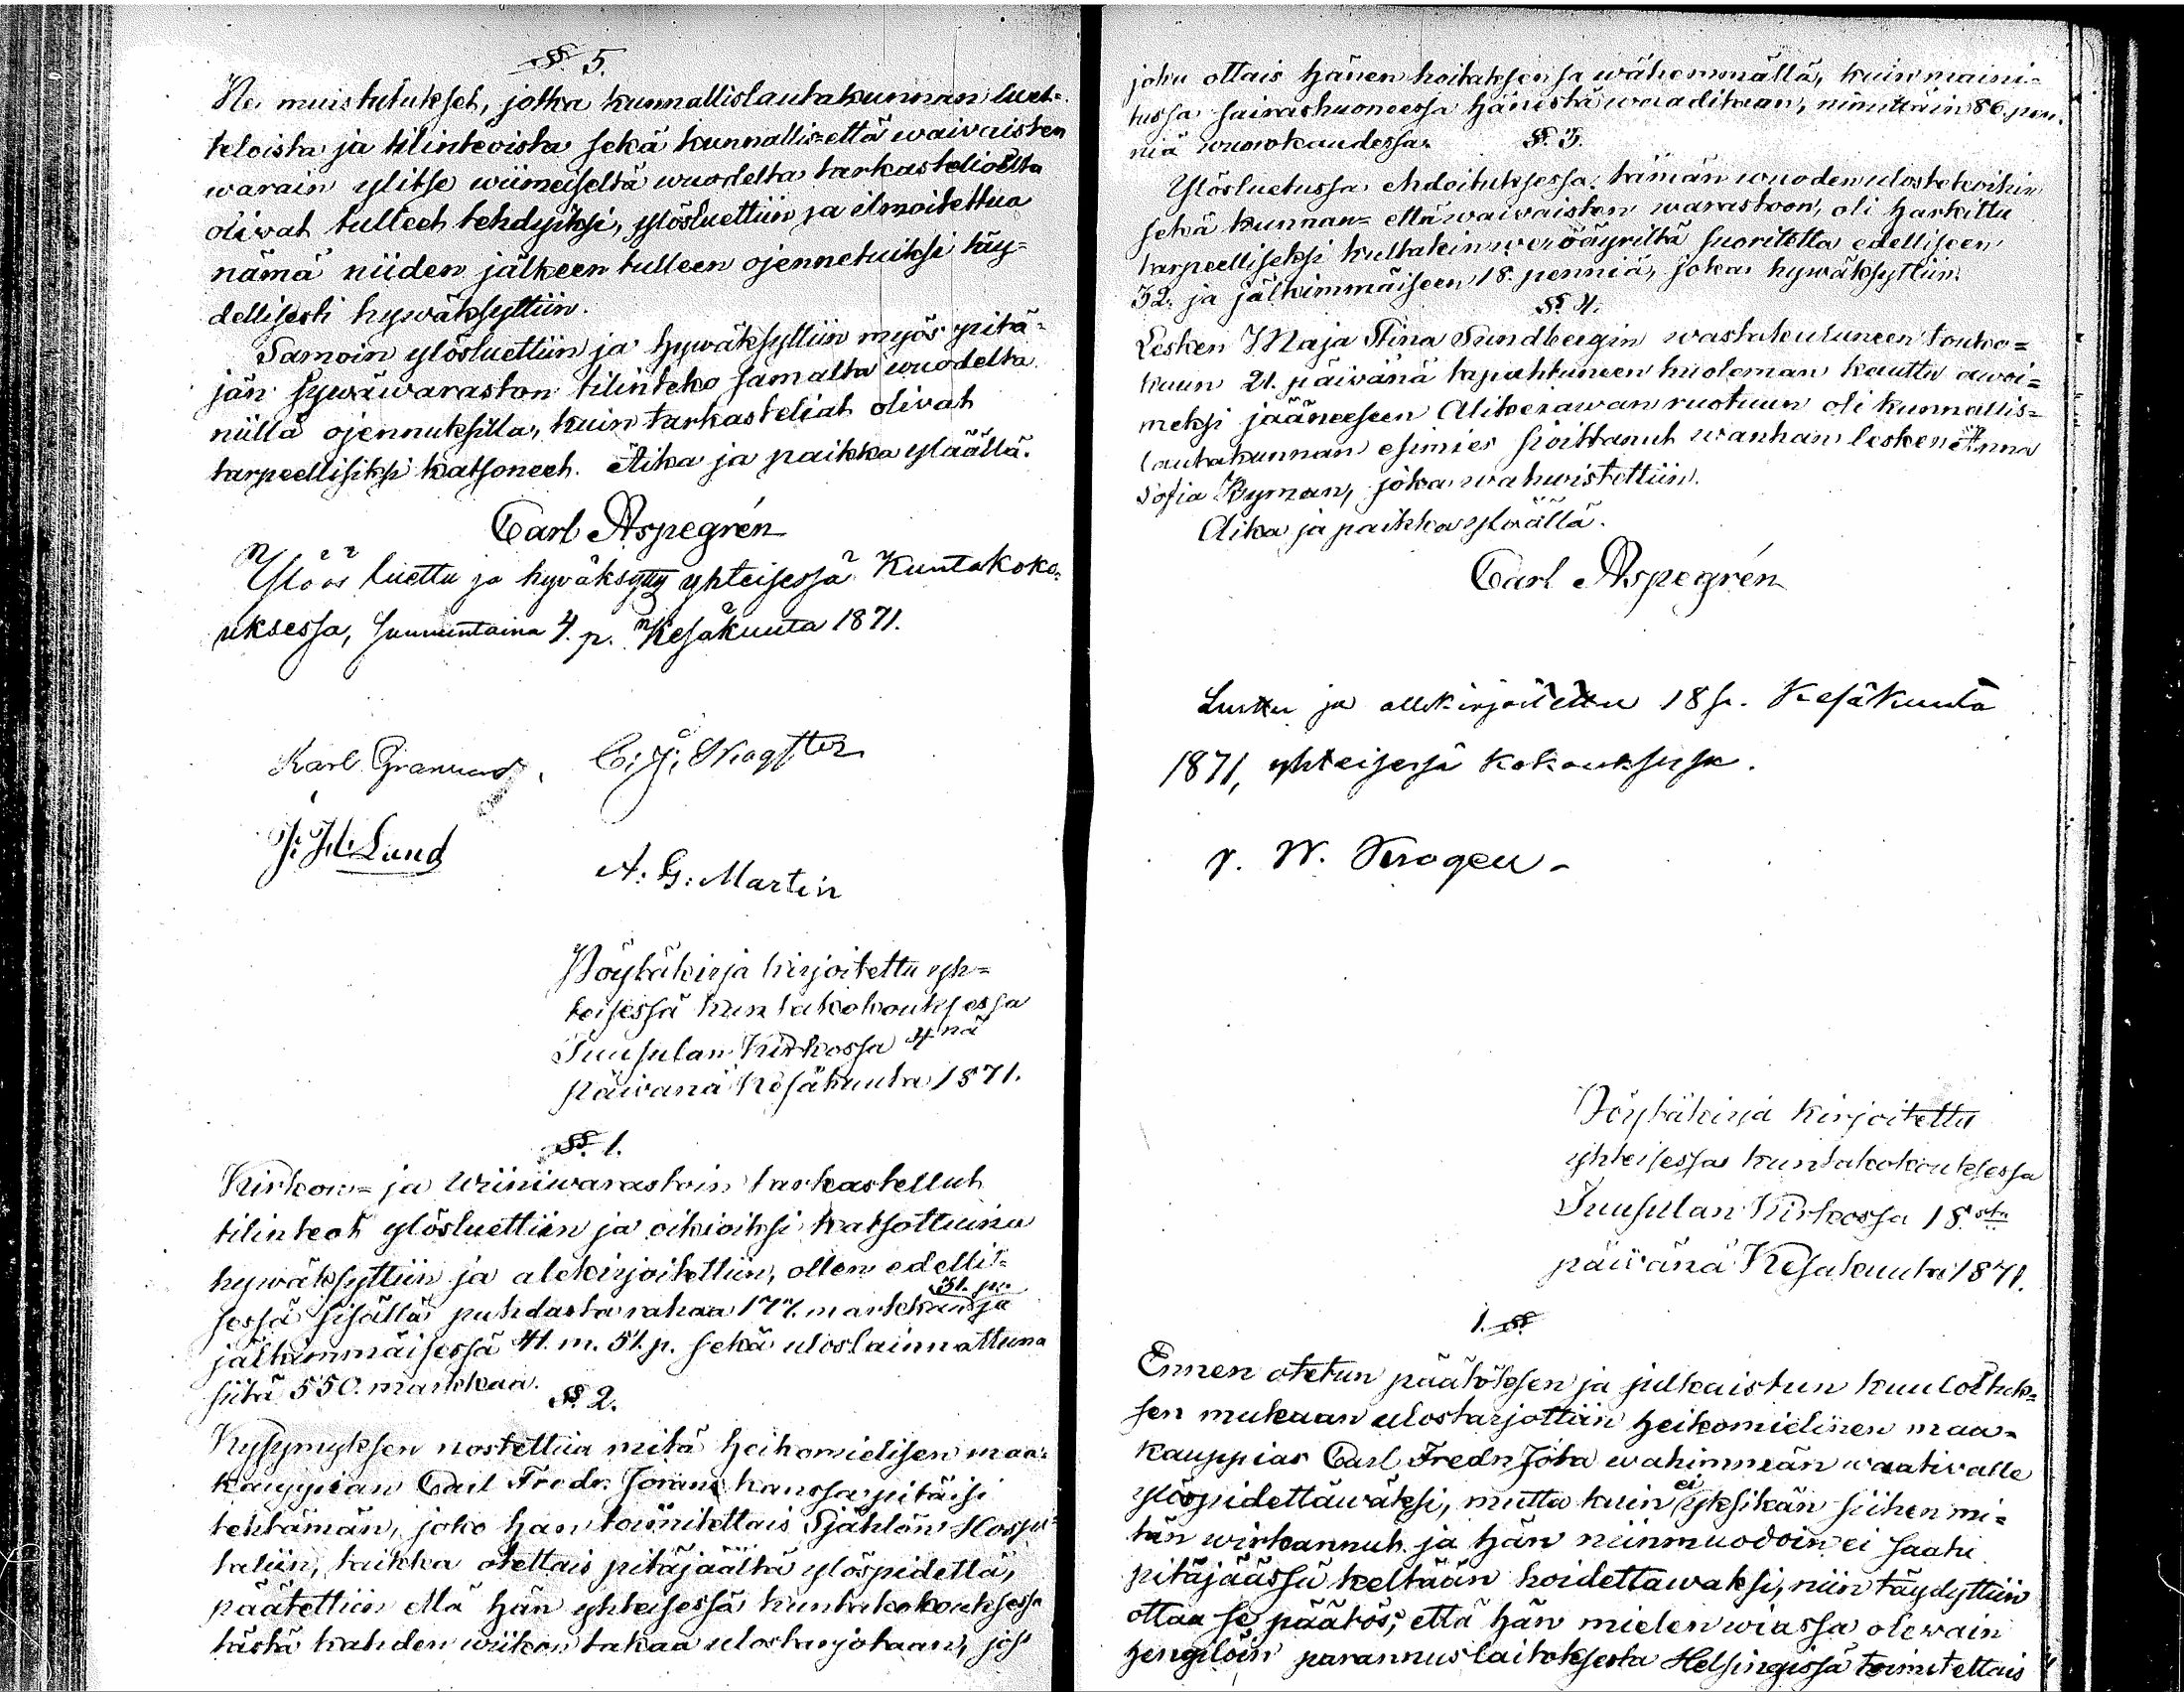 § 5.
Ne muistutukset, jotka kunnallislautakunnan luet-
teloista ja tilinteoista sekä kunnallis- että waivaisten
warain ylitse wiimeiseltä wuodelta tarkastelioilta
olivat tulleet tehdyiksi, ylösluettiin ja ilmoitettua
nämä niiden jälkeen tulleen ojennetuiksi täy-
dellisesti hywäksyttiin.
Samoin ylösluettiin ja hywäksyttiin myös pitä-
jän sywäwaraston tilinteko samalta wuodelta
niillä ojennuksilla, kuin tarkasteliat olivat
tarpeellisiksi katsoneet. Aika ja paikka yläällä.
Carl Aspegrén
Ylös luettu ja hyväksytty yhteisessä Kuntakoko-
uksessa, sunnuntaina 4. p. Kesäkuuta 1871.
Karl Granund. C. J. Skogster
J. H. Lund
A. G. Martin
Pöytäkirja kirjoitettu yh-
teisessä kuntakokouksessa
Tuusulan Kirkossa 4nä
päivänä Kesäkuuta 1871.
§ 1.
Kirkon- ja wiiniwarastoin tarkastellut
tilinteot ylösluettiin ja oikioiksi katsottuina
hywäksyttiin ja alekirjoitettiin, ollen edelli-
sessä sisällä puhdasta rahaa 177. markkaa 31. pn ja
jälkimmäisessä 41. m. 51. p. sekä uloslainnattuna
siitä 550. markkaa.
§ 2.
Kysymyksen nostettua mitä heikomielisen maa-
kauppian Carl Fredr. Joranc kanssa pitäisi
tehtämän, joko hän toimitettais Själlön Hospi-
taliin, taikka otettais pitäjäältä ylöspidettä,
päätettiin että hän yhteisessä kuntakokouksessa
tästä kahden wiikon takaa ulostarjotaan, jos
joku ottais hänen hoitaksensa wähemmällä, kuin maini-
tussa sairashuoneessa hänestä waaditaan, nimittäin 86. pen-
niä wuorokaudessa. § 3.
Ylösluetussa ehdoituksessa tämän wuoden ulosteteoihin
sekä kunnan- että waivaisten warastoon, oli harkittu
tarpeelliseksi kultakin weroäyriltä suoritetta edelliseen
32. ja jälkimmäiseen 18. penniä, joka hywäksyttiin.
§ 4.
Lesken Maja Stina Sundbergin wastakuluneen touko-
kuun 21. päivänä tapahtuneen kuoleman kautta awoi-
meksi jääneeseen Alikerawan ruotuun oli kunnallis-
lautakunnan esimies sioittanut wanhan lesken Anna
Sofia Ryman, joka wahwistettiin.
Aika ja paikka ylwällä.
Carl Aspegrén
Luettu ja allekirjoitettu 18 p. Kesäkuuta
1871, yhteisessä kokouksessa.
W. Krogen
Pöytäkirja kirjoitettu
yhteisessä kuntakokouksessa
Tuusulan Kirkossa 18sta
päivänä Kesäkuuta 1871.
1. §
Ennen otetun päätöksen ja julkaistun kuuloituk-
sen mukaan ulostarjottiin heikomielinen maa-
kauppias Carl Fredr. Jota wahimmän waativalle
ylöspidettäwäksi, mutta kuin ei yksikän siihen mi-
tän wirkannut ja hän niinmuodoin ei saatu
pitäjäässä keltään hoidettawaksi, niin täydyttiin
ottaa se päätös, että hän mielen wiassa olewain
hengilöin parannuslaitoksesta Helsingissä toimitettais